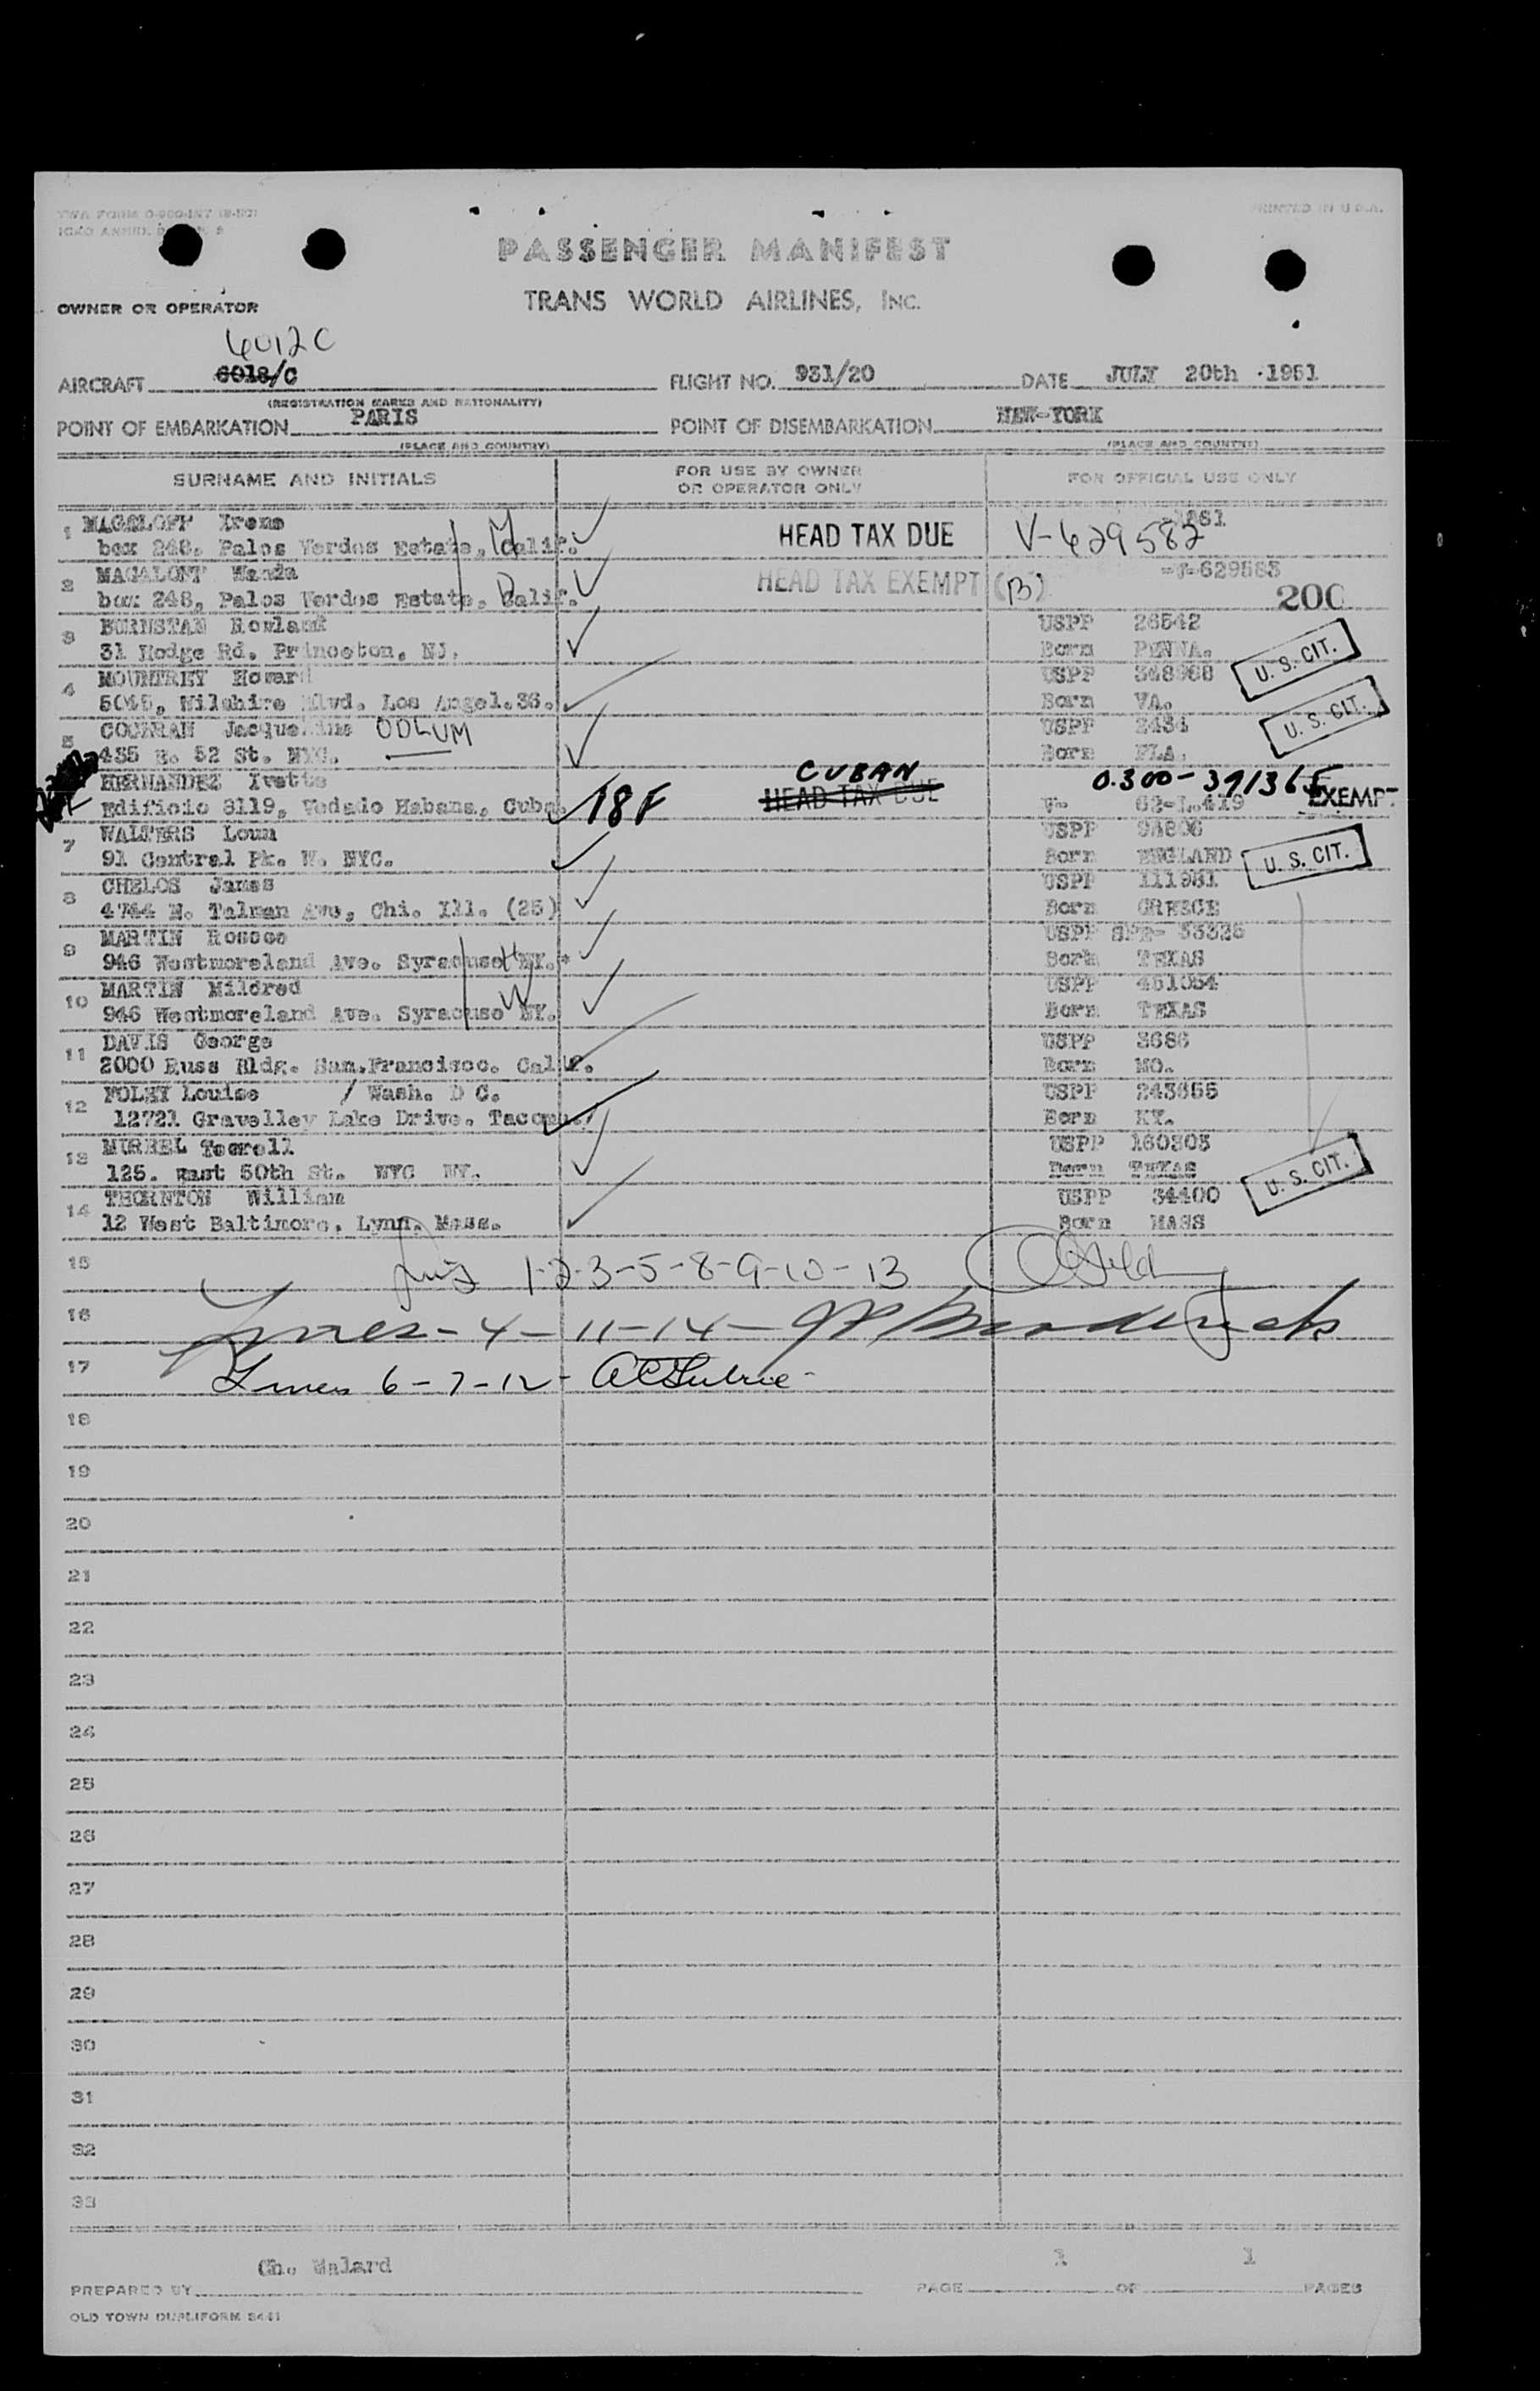 PRINTED IN U.S.A.
PASSENGER MANIFEST
TRANS WORLD AIRLINES, INC.
OWNER OR OPERATOR
6012C
AIRCRAFT 6018/C FLIGHT NO. 931/20 DATE JULY 20th 1951
(REGISTRATION MARKS AND NATIONALITY)
POINT OF EMBARKATION PARIS POINT OF DISEMBARKATION NEW-YORK
(PLACE AND COUNTRY) (PLACE AND COUNTRY)
SURNAME AND INITIALS FOR USE BY OWNER OR OPERATOR ONLY FOR OFFICIAL USE ONLY
1 MAGALOFF Irene
box 248, Palos Verdes Estate, Calif. M HEAD TAX DUE V-629582
2 MAGALOFF Wanda -V-629583
box 248, Palos Verdes Estate, Calif. D HEAD TAX EXEMPT (B) 200
3 Rowland USPP 26542
31 Hodge Rd. Princeton, NJ. Born PENNA. U. S. CIT.
4 Howard USPP 348988
5045, Wilshire Blvd. Los Angel.36. Born VA. U. S. CIT.
5 COCHRAN Jacqueline ODLUM USPP 2434
435 E. 52 St. NYC. Born FLA.
HERNANDEZ Ivette CUBAN 0.300-391365
Edificio 8119, Vedado Habana, Cuba. 18F HEAD TAX DUE V- 62-L.419 EXEMPT
7 WALTERS Loum USPP
91 Central Pk. W. NYC. Born ENGLAND U. S. CIT.
8 CHELOS James USPP 111981
4744 N. Talman Ave, Chi. Ill. (25) Born GREECE
9 MARTIN Roscoe USPP
946 Westmoreland Ave. Syracuse NY. H Born TEXAS
10 MARTIN Mildred USPP 461054
946 Westmoreland Ave. Syracuse NY. W Born TEXAS
11 DAVIS George USPP 3686
2000 Russ Bldg. San.Francisco. Calif. Born MO.
12 FOLEY Louise / Wash. D C. USPP 243655
12721 Gravelley Lake Drive. Tacoma./ Born KY.
13 MURREL Tourell USPP 160303
125. East 50th St. NYC NY. Born TEXAS
14 THORNTON William USPP 34400 U. S. CIT.
12 West Baltimore, Lynn, Mass. Born MASS
15 1-2-3-5-8-9-10-13
16 Lines-4-11-14-
17 Lines 6-7-12-
18
19
20
21
22
23
24
25
26
27
28
29
30
31
32
33
PREPARED BY Ch. Malard PAGE 1 OF 1 PAGES
OLD TOWN DUPLIFORM 8441